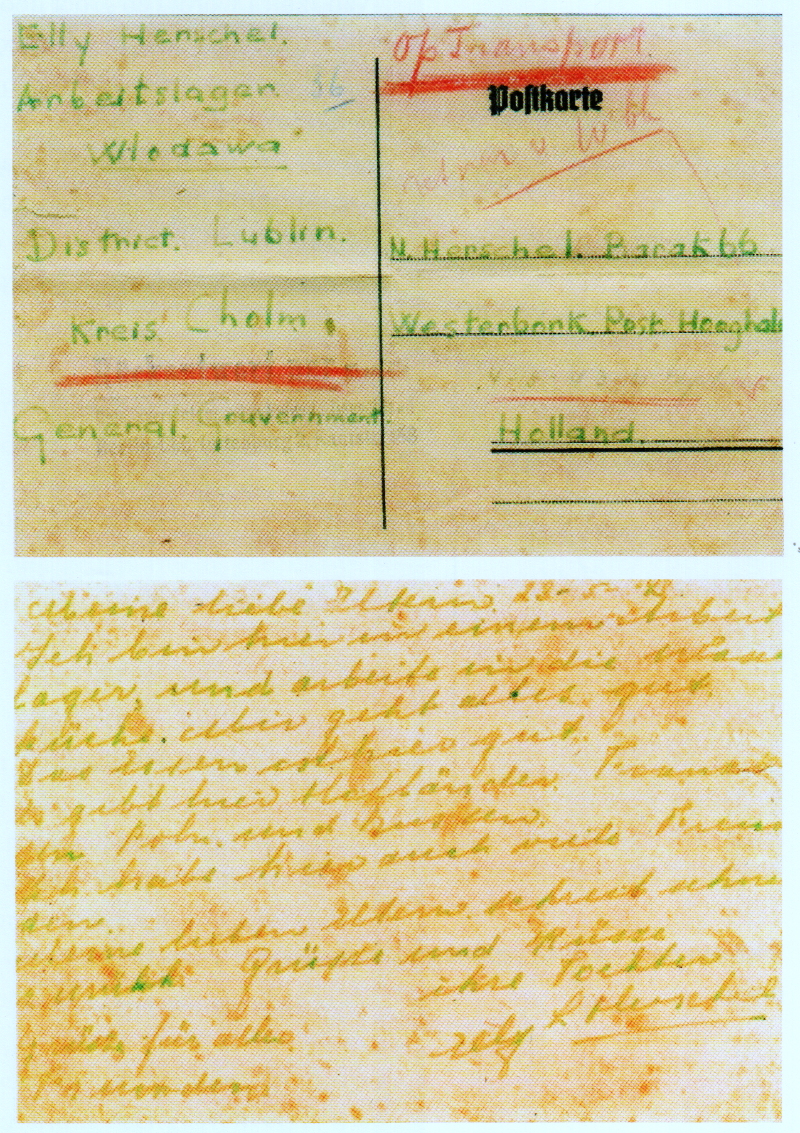 Elly Herschel.
Arbeitslager 86
Wlodawa
District. Lublin.
Kreis Cholm.
General. Grouvernment.
Op Transport.
Postkarte
N. Herschel. Barak 66
Westerbork, Post Hooghale
Holland.
Meine liebe Eltern 23-5-
Ich bin hier in einem Arbeit
lager, und arbeite in die
küche. Mir geht alles gut.
Das Essen ist hier gut.
Es gibt hier Holländer.
Poln. und Russen.
Ich habe hier auch viele
den.
Meine lieben Eltern schreib
zurück Grüße und Küsse
ihre Tochter
Elly E Herschel
für alle